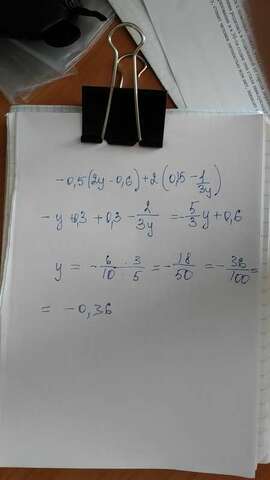 -0,5(2y-0,6)+2(0,15-1/3y)
-y+0,3+0,3-2/3y=-5/3y+0,6
y=-6·3/10·5=-18/50=-36/100=
=-0,36